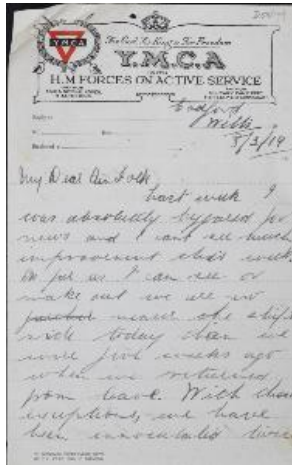 For God, For King & For Freedom
Y.M.C.A
Y.M.C.A
WITH
H.M FORCES ON ACTIVE SERVICE
Codford
Wilts
5/3/19
My Dear Ain Folk
Last week I
was absolutely for
news and I cant see much
improvement this week.
As far as I can see or
make out we are no
nearer the ship
side today than we
were five weeks ago
when we returned
from leave. With
exceptions, we have
been innoculated twice